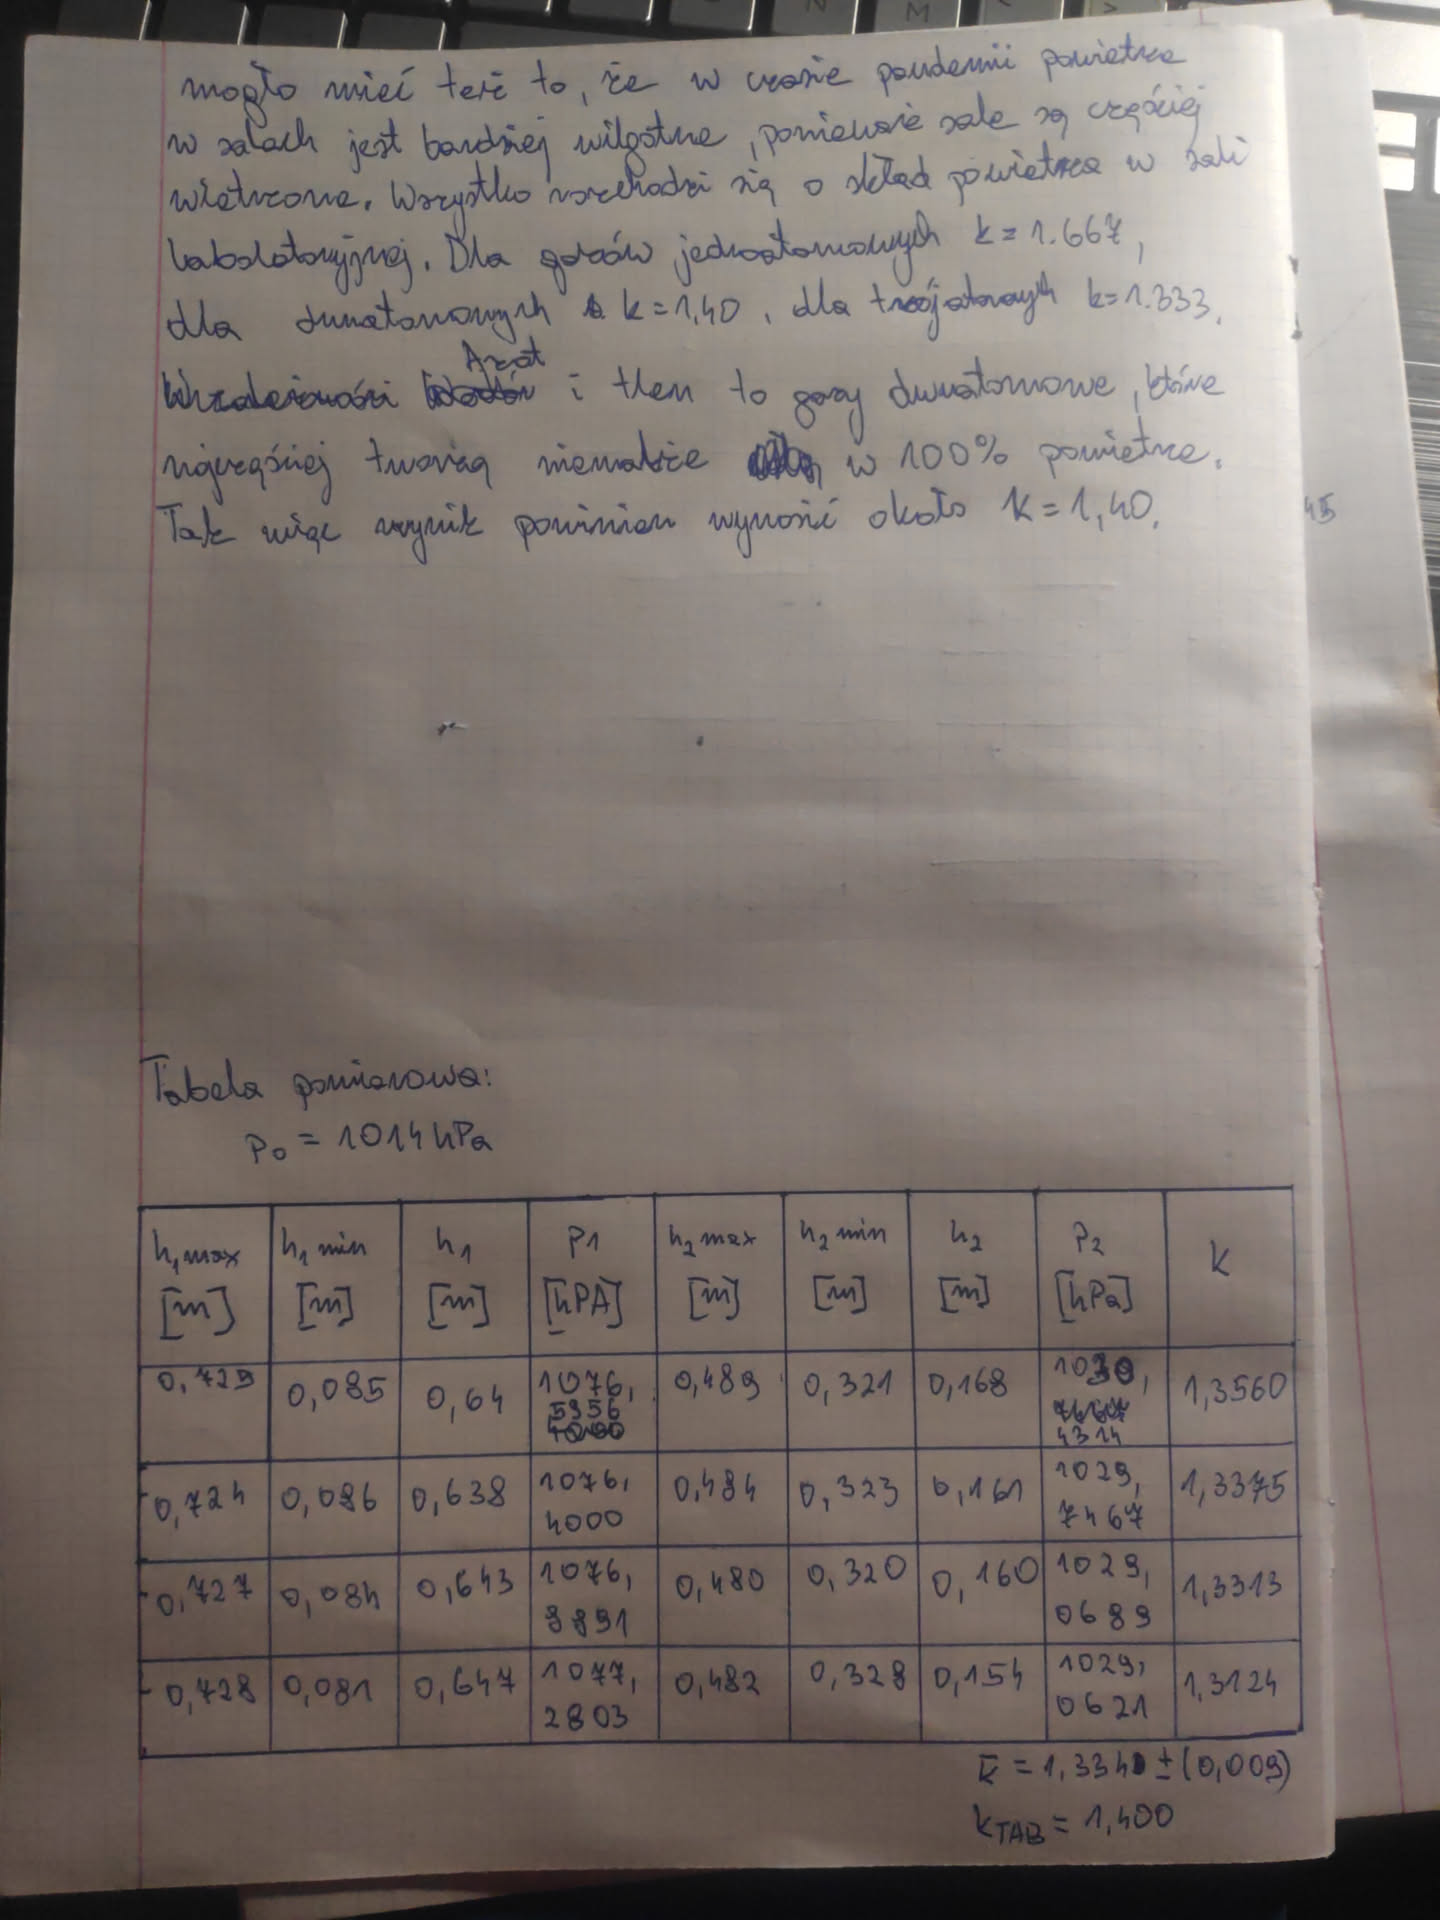 mogło mieć też to, że w czasie pandemii powietrze
w salach jest bardziej wilgotne, ponieważ sale są częściej
wietrzone. Wszystko rozchodzi się o skład powietrza w sali
labolatoryjnej. Dla gazów jednoatomowych k = 1.667,
dla dwuatomowych k = 1,40, dla trójatomowych k = 1.333.
Azot
i tlen to gazy dwuatomowe, które
najczęściej tworzą niemalże w 100% powietrze.
Tak więc wynik powinien wynosić około k = 1,40.
45
Tabela pomiarowa:
P₀ = 1014 hPa
h₁ max [m] h₁ min [m] h₁ [m] P1 [hPA] h₂ max [m] h₂ min [m] h₂ [m] P₂ [hPa] k
0,729 0,085 0,64 1076,5956 0,489 0,321 0,168 1030,4314 1,3560
0,724 0,086 0,638 1076,4000 0,484 0,323 0,161 1029,7467 1,3375
0,727 0,084 0,643 1076,8891 0,480 0,320 0,160 1029,0689 1,3313
0,728 0,081 0,647 1077,2803 0,482 0,328 0,154 1029,0621 1,3124
k̅ = 1,334 ± (0,009)
kTAB = 1,400